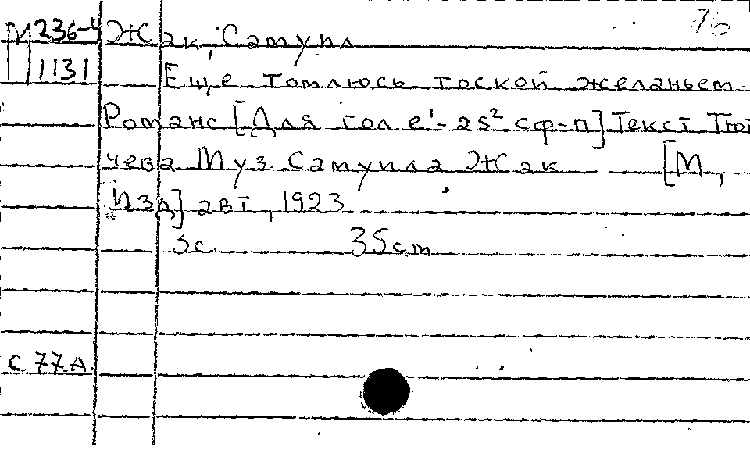 М 236-4 Жак, Самуил
1131 Еще томлюсь тоской желаньем.
Романс [Для гол e¹-as² с ф-п] Текст Тют
чева Муз Самуила Жак [М,
Изд] авт, 1923
3с. 35cm